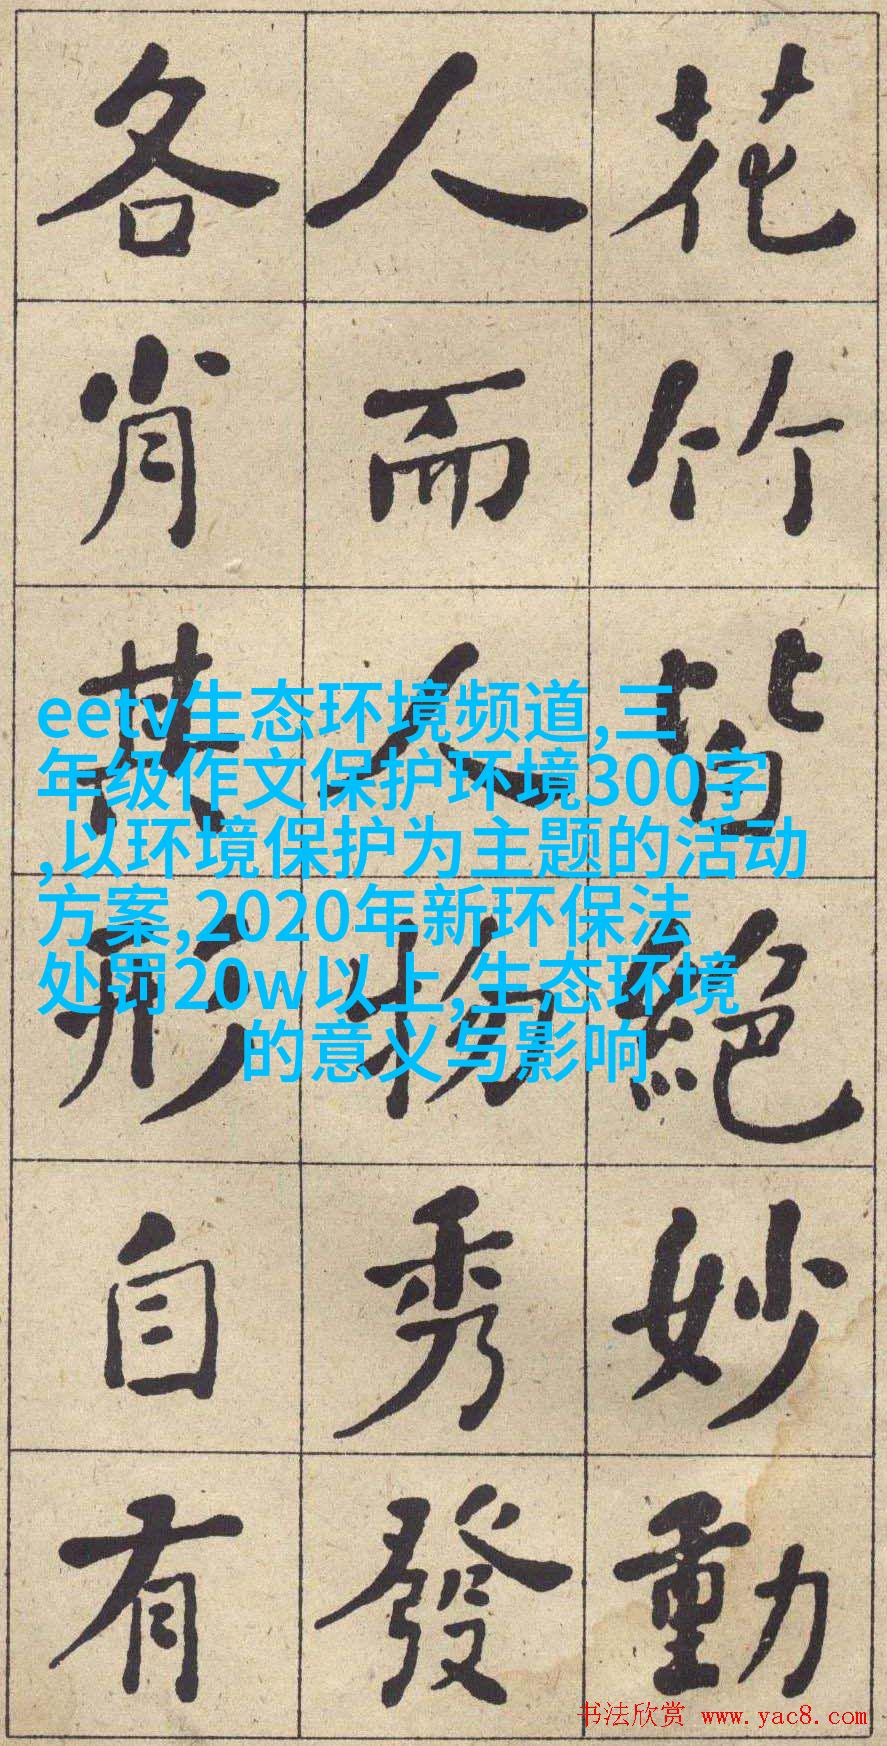 花竹皆絕妙動
人而人物秀發
各肖其形自有
eetv生态环境频道,三
年级作文保护环境300字
,以环境保护为主题的活动
方案,2020年新环保法
处罚20w以上,生态环境
的意义与影响
书法欣赏 www.yac8.com